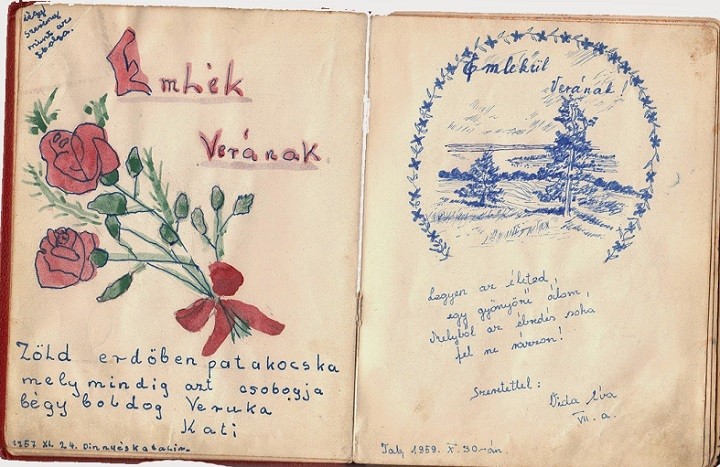 Légy
szerény
mint az
ibolya.
Emlék
Verának
Zöld erdőben patakocska
mely mindig azt csobogja
Légy boldog Veruka
Kati
1957 XI. 24. Dinnyés Katalin.
Emlékül
Verának!
Legyen az életed,
egy gyönyörű álom,
Melyből az ébredés soha
fel ne rázzon!
Szeretettel:
Vida Éva
VII. a.
1959. X. 30-án.